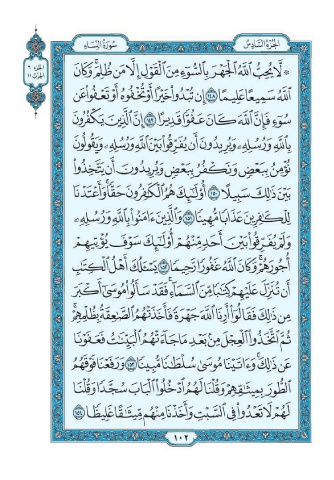 الجزء السادس
سورة النساء
الجزء ٦
الحزب ١١
۞ لَّا يُحِبُّ ٱللَّهُ ٱلْجَهْرَ بِٱلسُّوٓءِ مِنَ ٱلْقَوْلِ إِلَّا مَن ظُلِمَ ۚ وَكَانَ
ٱللَّهُ سَمِيعًا عَلِيمًا ١٤٨ إِن تُبْدُوا۟ خَيْرًا أَوْ تُخْفُوهُ أَوْ تَعْفُوا۟ عَن
سُوٓءٍ فَإِنَّ ٱللَّهَ كَانَ عَفُوًّا قَدِيرًا ١٤٩ إِنَّ ٱلَّذِينَ يَكْفُرُونَ
بِٱللَّهِ وَرُسُلِهِۦ وَيُرِيدُونَ أَن يُفَرِّقُوا۟ بَيْنَ ٱللَّهِ وَرُسُلِهِۦ وَيَقُولُونَ
نُؤْمِنُ بِبَعْضٍ وَنَكْفُرُ بِبَعْضٍ وَيُرِيدُونَ أَن يَتَّخِذُوا۟
بَيْنَ ذَٰلِكَ سَبِيلًا ١٥٠ أُو۟لَٰٓئِكَ هُمُ ٱلْكَٰفِرُونَ حَقًّا ۚ وَأَعْتَدْنَا
لِلْكَٰفِرِينَ عَذَابًا مُّهِينًا ١٥١ وَٱلَّذِينَ ءَامَنُوا۟ بِٱللَّهِ وَرُسُلِهِۦ
وَلَمْ يُفَرِّقُوا۟ بَيْنَ أَحَدٍ مِّنْهُمْ أُو۟لَٰٓئِكَ سَوْفَ يُؤْتِيهِمْ
أُجُورَهُمْ ۗ وَكَانَ ٱللَّهُ غَفُورًا رَّحِيمًا ١٥٢ يَسْـَٔلُكَ أَهْلُ ٱلْكِتَٰبِ
أَن تُنَزِّلَ عَلَيْهِمْ كِتَٰبًا مِّنَ ٱلسَّمَآءِ ۚ فَقَدْ سَأَلُوا۟ مُوسَىٰٓ أَكْبَرَ
مِن ذَٰلِكَ فَقَالُوٓا۟ أَرِنَا ٱللَّهَ جَهْرَةً فَأَخَذَتْهُمُ ٱلصَّٰعِقَةُ بِظُلْمِهِمْ ۚ
ثُمَّ ٱتَّخَذُوا۟ ٱلْعِجْلَ مِنۢ بَعْدِ مَا جَآءَتْهُمُ ٱلْبَيِّنَٰتُ فَعَفَوْنَا
عَن ذَٰلِكَ ۚ وَءَاتَيْنَا مُوسَىٰ سُلْطَٰنًا مُّبِينًا ١٥٣ وَرَفَعْنَا فَوْقَهُمُ
ٱلطُّورَ بِمِيثَٰقِهِمْ وَقُلْنَا لَهُمُ ٱدْخُلُوا۟ ٱلْبَابَ سُجَّدًا وَقُلْنَا
لَهُمْ لَا تَعْدُوا۟ فِى ٱلسَّبْتِ وَأَخَذْنَا مِنْهُم مِّيثَٰقًا غَلِيظًا ١٥٤
١٠٢